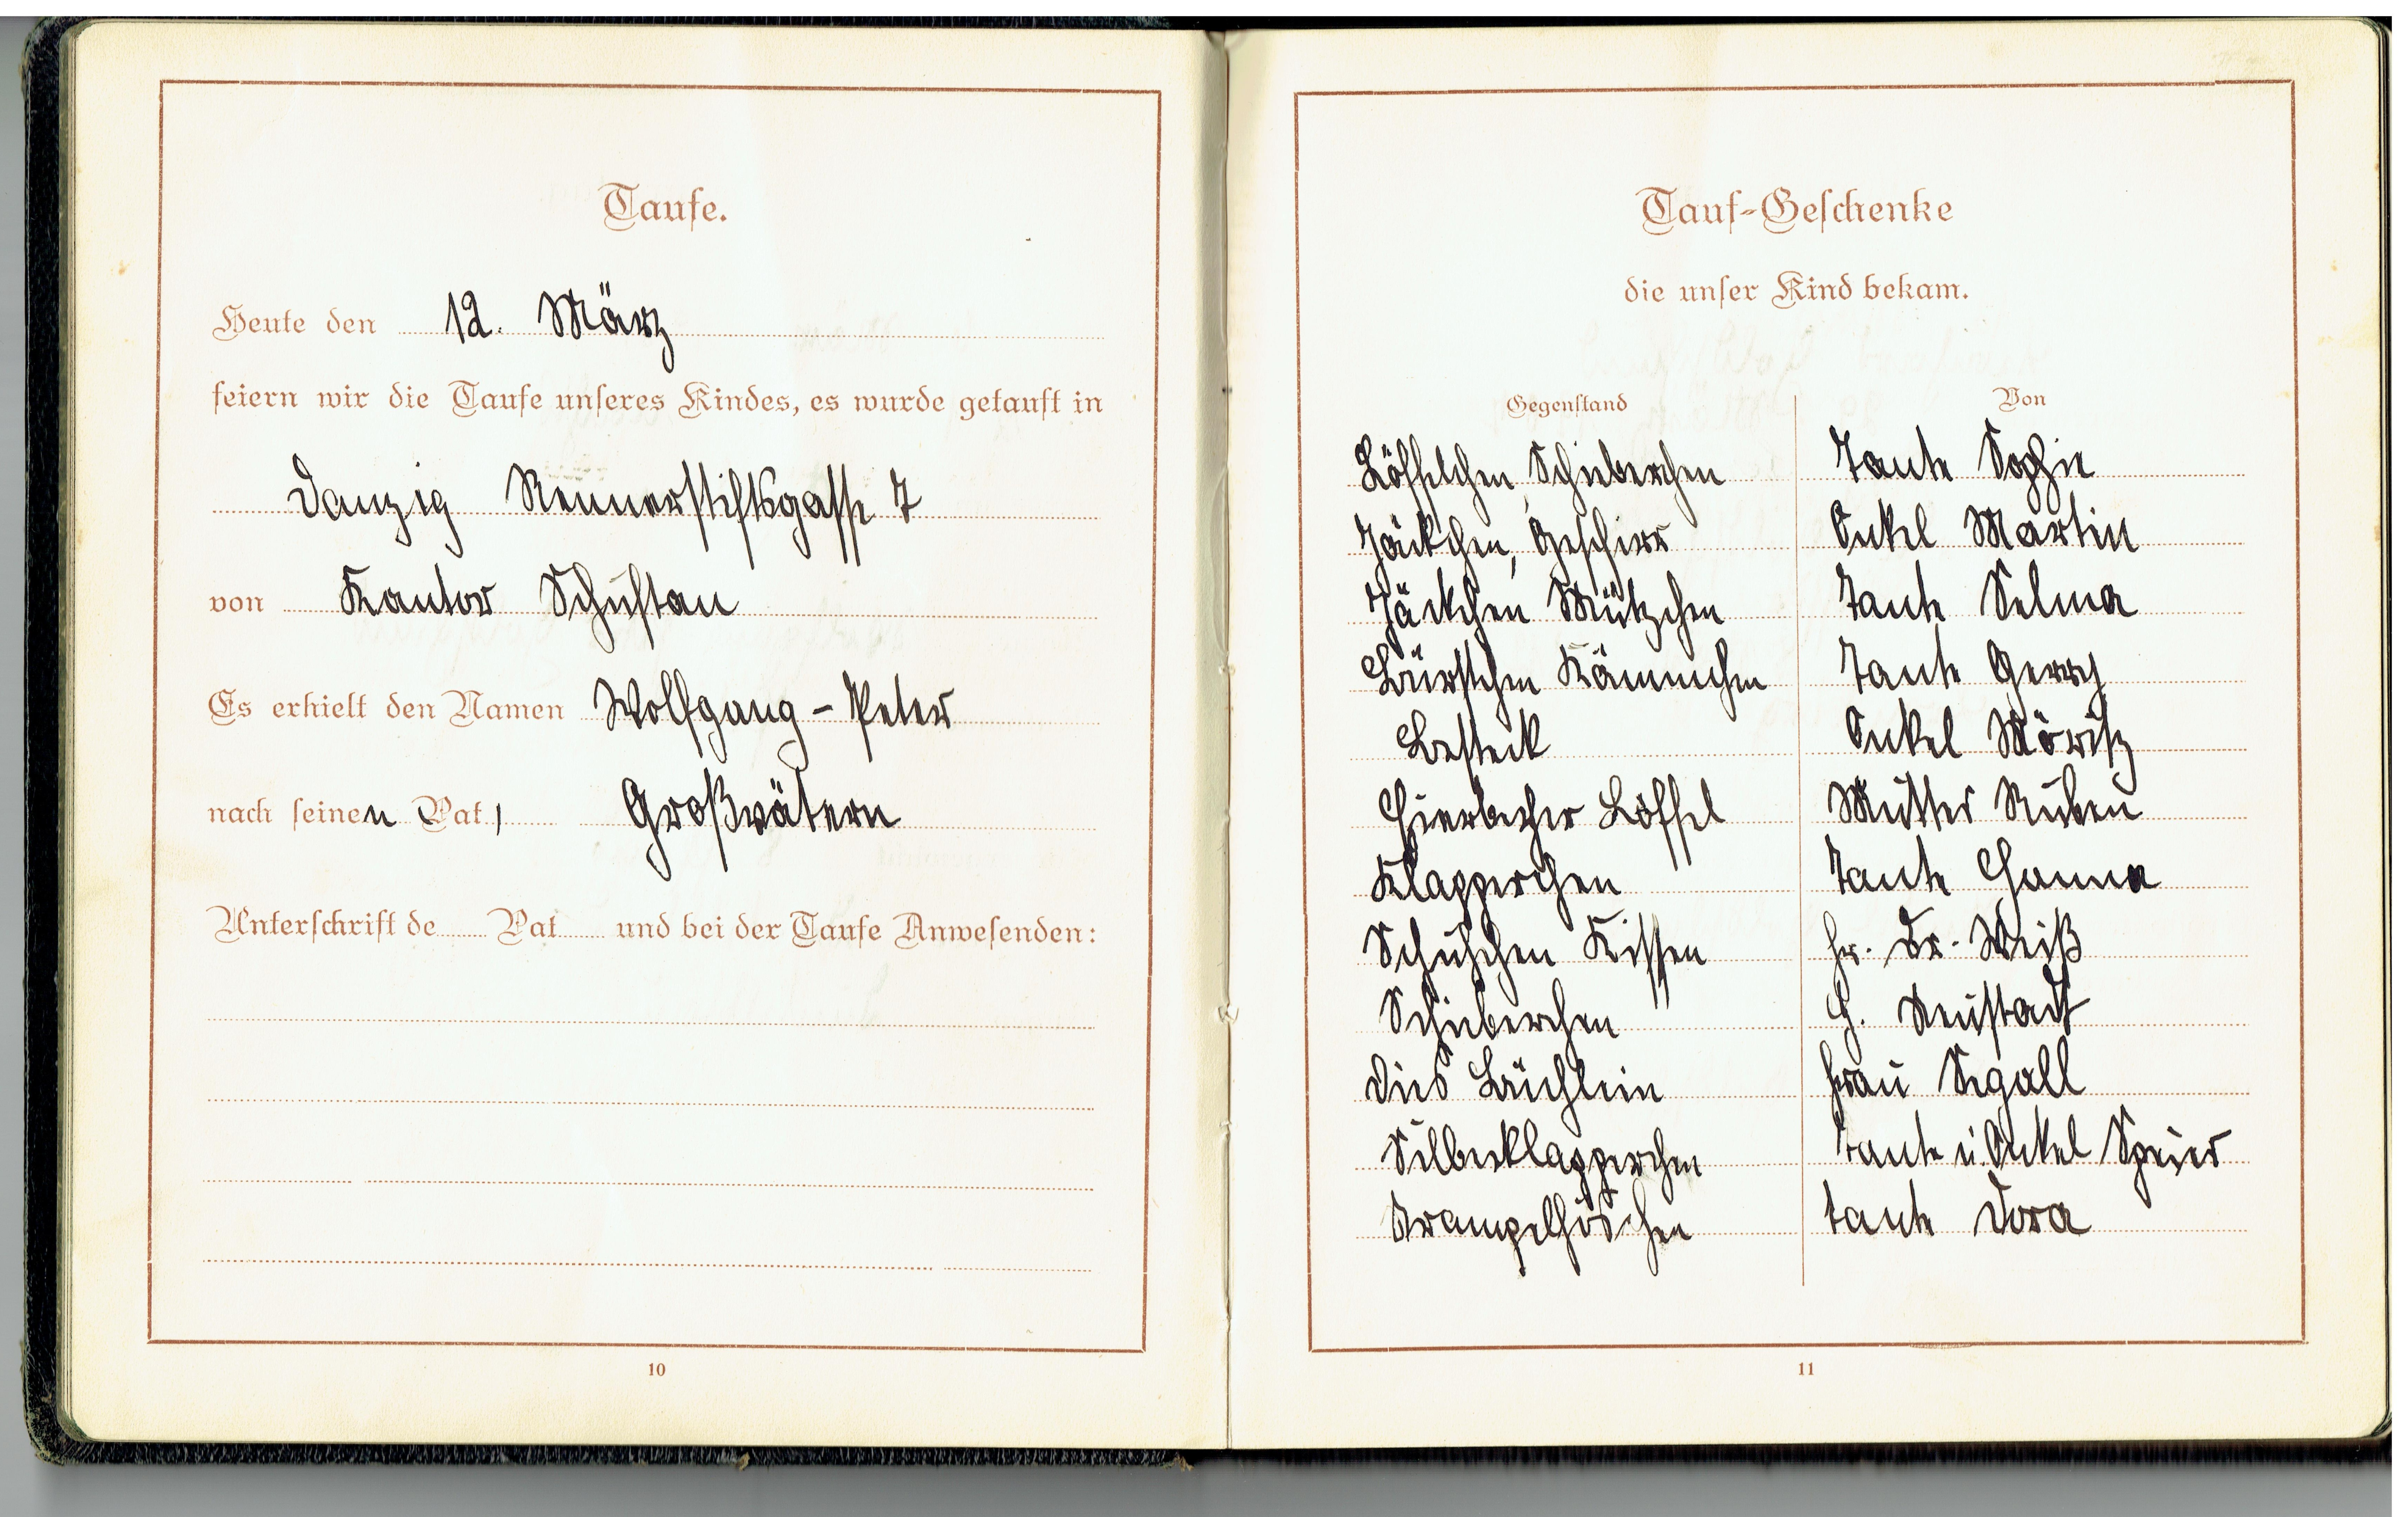 Taufe.
Heute den 12. März
feiern wir die Taufe unseres Kindes, es wurde getauft in
Danzig Rennerstiftsgasse 7
von Kantor Schuftan
Es erhielt den Namen Wolfgang - Peter
nach seinen Pat, Großvätern
Unterschrift de Pat und bei der Taufe Anwesenden:
10
Tauf-Geschenke
die unser Kind bekam.
Gegenstand Von
Löffelchen, Schieberchen Tante Sophie
Jäckchen, Geschirr Onkel Martin
Jäckchen Mützchen Tante Selma
Bürstchen Kämmchen Tante Gerry
Besteck Onkel Möritz
Eierbecher Löffel Mutter Ruben
Klapperchen Tante Hanna
Schuhchen Kissen Fr. Dr. Weiß
Schieberchen H. Neustadt
Dies Büchlein Frau Segall
Silberklapperchen Tante u. Onkel Speier
Strampelhöschen Tante Dora
11